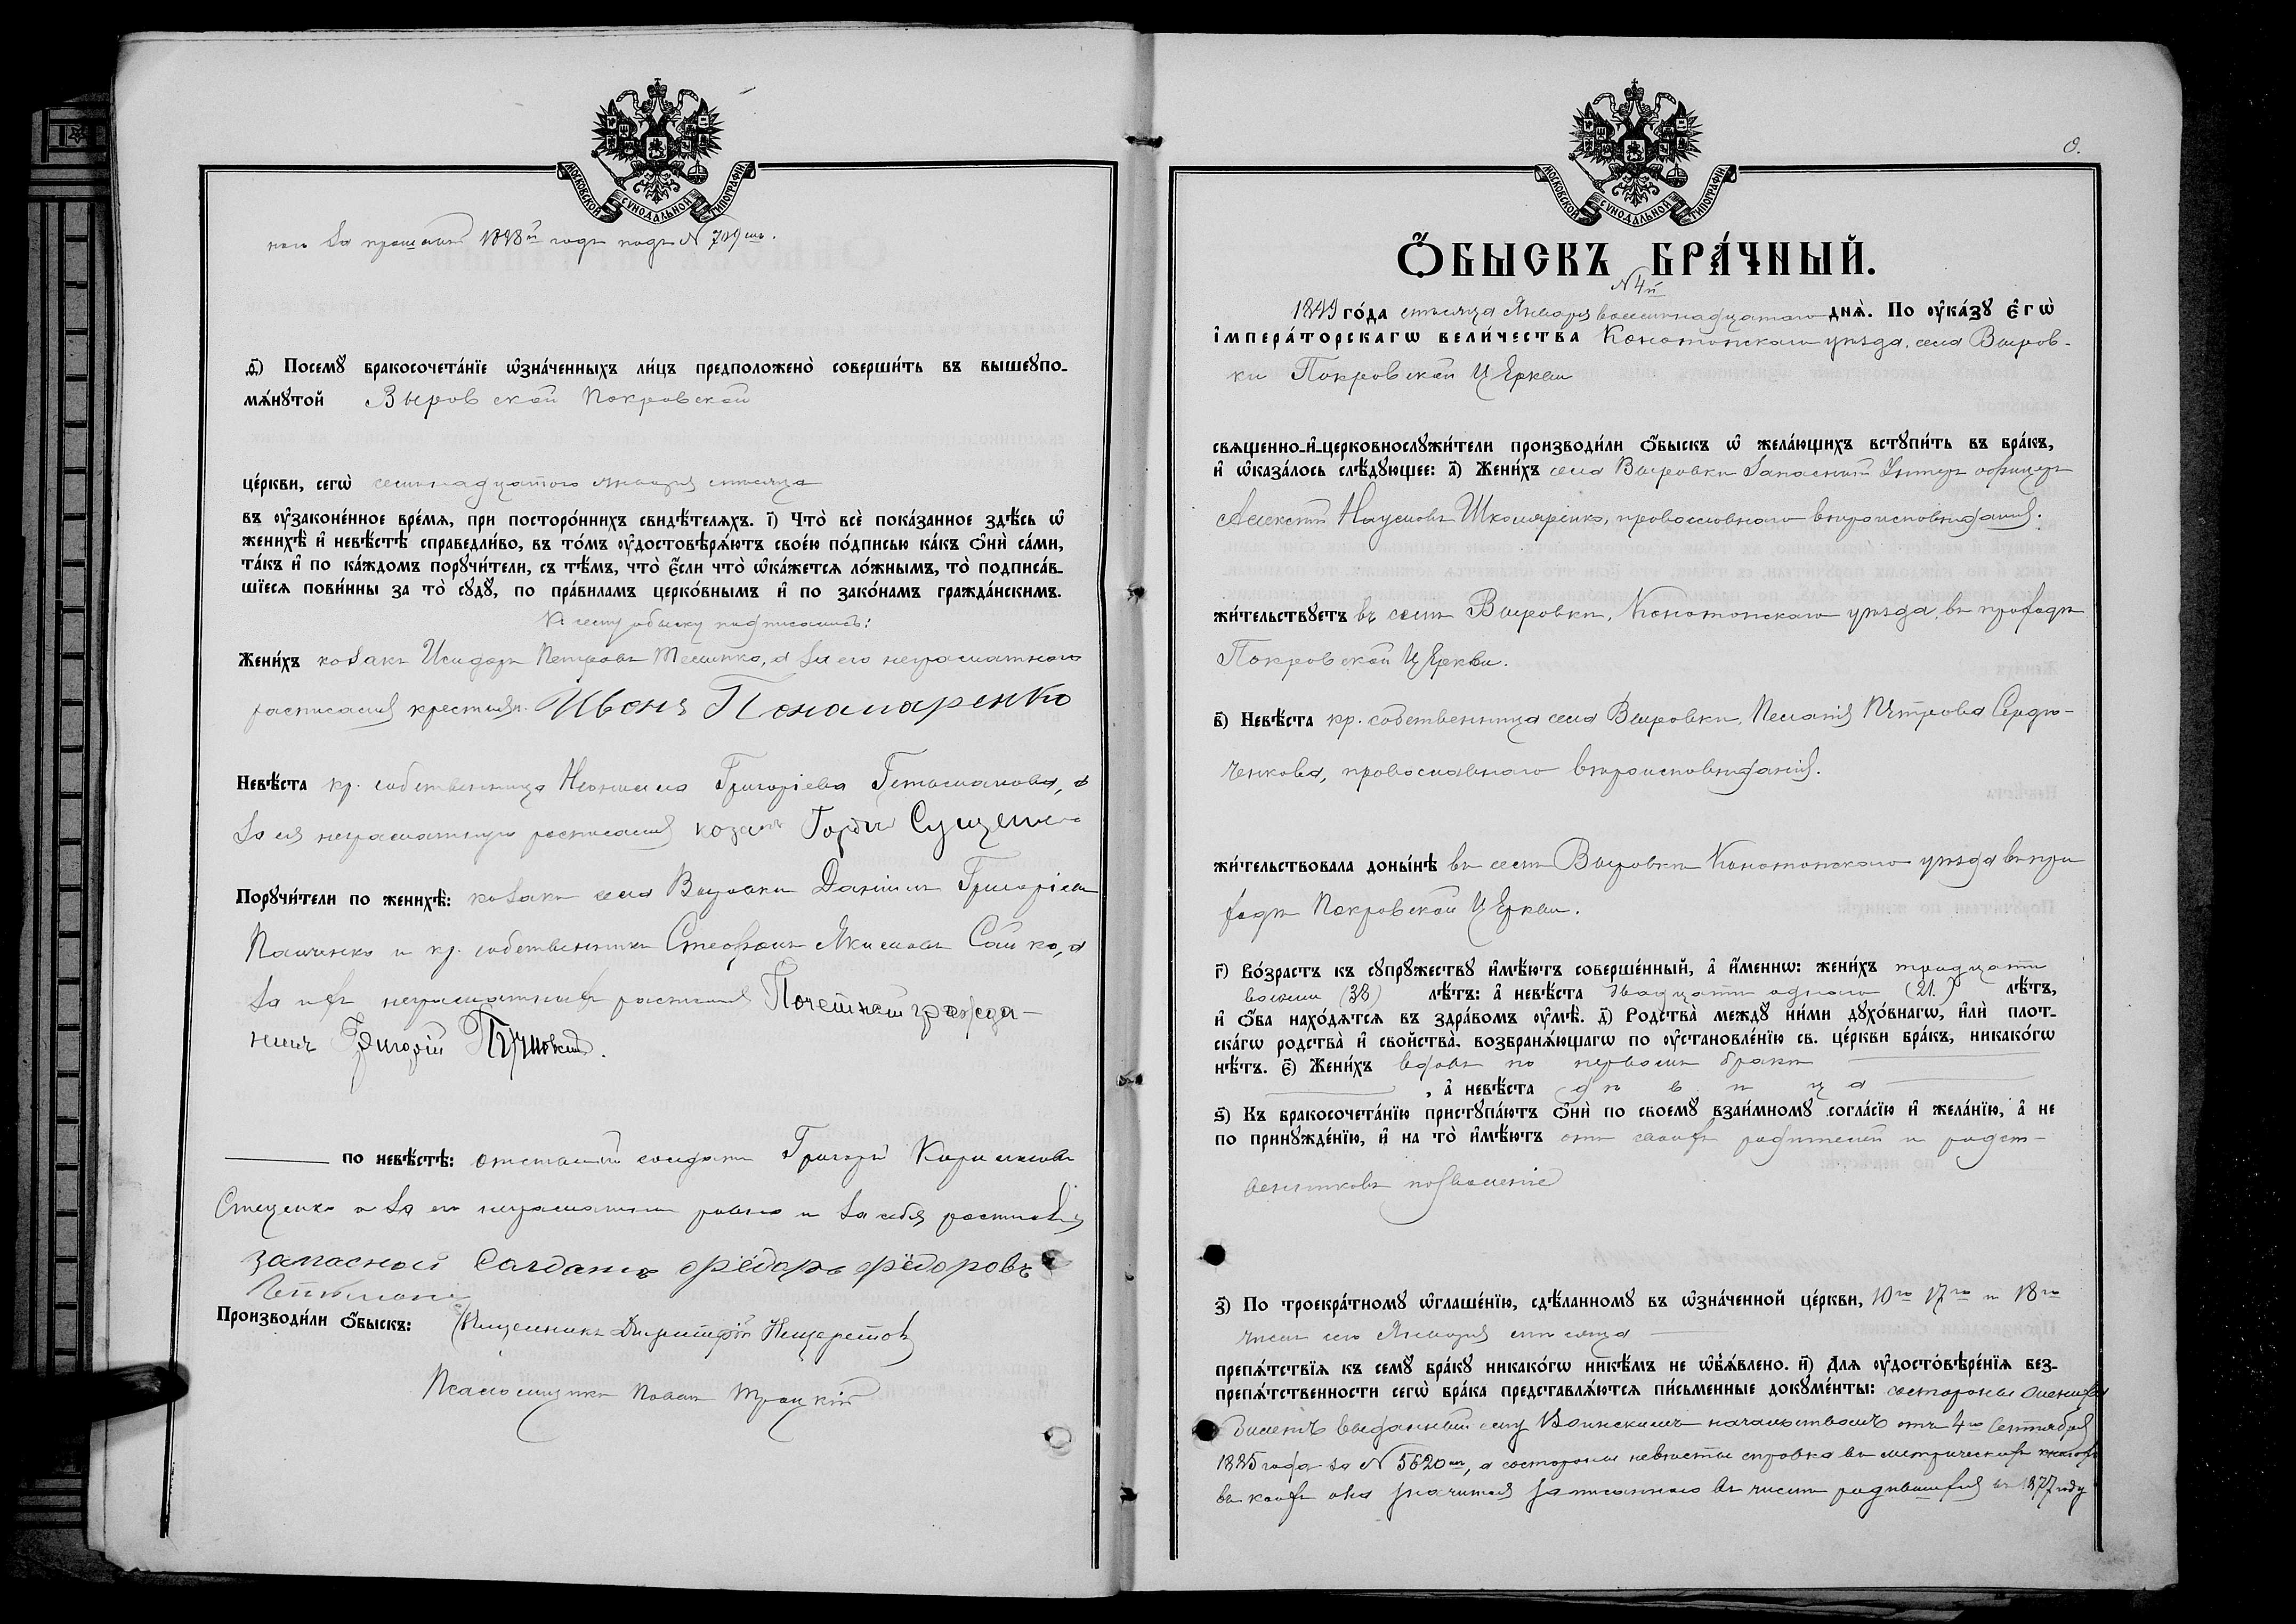 МОСКОВСКОЙ СѴНОДАЛЬНОЙ ТИПОГРАФІИ
за прошлый 1898й годъ подъ № 709мъ.
д҃і) Посемꙋ бракосочета́нїе ѡ҆зна́ченныхъ ли́цъ предположено̀ соверши́ть въ вышеꙋпо-
мѧ́нꙋтой Выровской Покровской
це́ркви, сегѡ̀ семнадцатого Января месяца
въ ᲂу҆законе́нное вре́мѧ, при посторо́ннихъ свидѣ́телѧхъ. і҃) Что̀ всѐ пока́занное здѣ́сь ѡ҆
женихѣ̀ и҆ невѣ́стѣ справедли́во, въ то́мъ ᲂу҆достовѣрѧ́ютъ свое́ю по́дписью ка́къ ѻ҆нѝ са́ми,
та́къ и҆ по ка́ждомъ порꙋчи́тели, съ тѣ́мъ, что̀ є҆́сли что̀ ѡ҆ка́жетсѧ ло́жнымъ, то̀ подписа́в-
шїесѧ пови́нны за то̀ сꙋдꙋ̀, по пра́виламъ церко́внымъ и҆ по зако́намъ гражда́нскимъ.
К сему обыску подписались:
Жени́хъ козакъ Исидоръ Петровъ, а за его неграмотного
росписался крестьян. Иванъ Понамаренко
Невѣ́ста кр. собственница Григоріева Гетьманова, а
за ея неграмотную росписался козакъ
Порꙋчи́тели по женихѣ̀: козакъ села Выровки Даніилъ Григоріевъ
и кр. собственникъ Стефанъ Якимовъ Сайко, а
за ихъ неграмотныхъ росписался Почетный гражда-
нинъ Григорій
по невѣ́стѣ: отставной солдатъ Григорій
Стеценко а за его неграмотного росписался
запасной Салдатъ Фёдоръ Фёдоровъ
Производи́ли ѻ҆́быскъ: Священникъ Димитрій
Псаломщикъ Павелъ Троцкій
МОСКОВСКОЙ СѴНОДАЛЬНОЙ ТИПОГРАФІИ
Ѻ҆́БЫСКЪ БРА́ЧНЫЙ.
№ 4й
1899 го́да месяца Января восемнадцатого днѧ̀. По ᲂу҆ка́зꙋ є҆гѡ̀
і҆мпера́торскагѡ вели́чества Конотопскаго уезда, села Выров-
ки Покровской Церкви
свѧщенно-и҆-церковнослꙋжи́тели производи́ли ѻ҆́быскъ ѡ҆ жела́ющихъ встꙋпи́ть въ бра́къ,
и҆ ѡ҆каза́лось слѣ́дꙋющее: а҃) Жени́хъ села Выровки Запасный Унтеръ офицеръ
Алексѣй Наумовъ Школяренко, православнаго вѣроисповѣданія.
жи́тельствꙋетъ въ селѣ Выровки, Конотопскаго уѣзда, въ приходѣ
Покровской Церкви.
в҃) Невѣ́ста кр. собственница села Выровки, Пелагія Петрова Сердю-
ченкова, православнаго вѣроисповѣданія.
жи́тельствовала доны́нѣ въ селѣ Выровки Конотопскаго уѣзда въ при
ходѣ Покровской Церкви.
г҃) Во́зрастъ къ сꙋпрꙋ́жествꙋ и҆мѣ́ютъ соверше́нный, а҆ и҆́меннѡ: жени́хъ тридцати
восьми (38) лѣ́тъ: а҆ невѣ́ста двадцати одного (21.) лѣ́тъ,
и҆ ѻ҆́ба нахо́дѧтсѧ въ здра́вомъ ᲂу҆мѣ̀. д҃) Родства̀ междꙋ̀ ни́ми дꙋхо́внагѡ, и҆лѝ плот-
ска́гѡ родства̀ и҆ сво́йства̀, возбранѧ́ющагѡ по ᲂу҆становле́нїю св. це́ркви бра́къ, никако́гѡ
нѣ́тъ. є҃) Жени́хъ вдовъ по первомъ бракѣ
, а҆ невѣ́ста дѣвица
ѕ҃) Къ бракосочета́нїю пристꙋпа́ютъ ѻ҆нѝ по своемꙋ̀ взаи́мномꙋ согла́сїю и҆ жела́нїю, а҆ не
по принꙋжде́нїю, и҆ на то̀ и҆мѣ́ютъ отъ своихъ родителей и родст-
венниковъ позволеніе
з҃) По троекра́тномꙋ ѡ҆глаше́нїю, сдѣ́ланномꙋ въ ѡ҆зна́ченной це́ркви, 10го 17го и 18го
чиселъ сего Января месяца
препѧ́тствїѧ къ семꙋ̀ бра́кꙋ никако́гѡ никѣ́мъ не ѡ҆б̾ѧ́влено. и҃) Длѧ̀ ᲂу҆достовѣре́нїѧ без-
препѧ́тственности сегѡ̀ бра́ка представлѧ́ютсѧ пи́сьменные докꙋме́нты: состороны жениха
билетъ выданный ему Воинскимъ начальствомъ отъ 4го Сентября
1885 года за № 5620мъ, а состороны невѣсты справка въ метрическихъ книгахъ
въ коихъ она значится записанною въ числѣ родившихся въ 1877 году